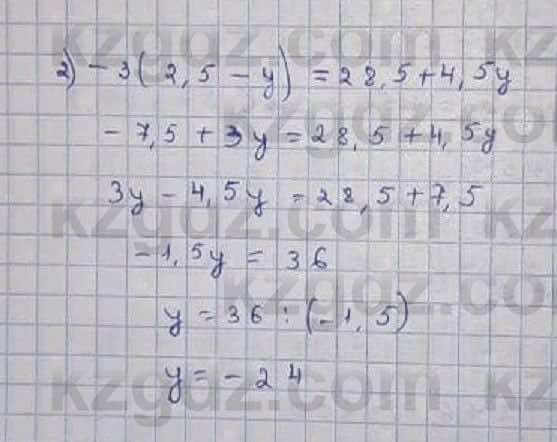 2) -3(2,5-y)=28,5+4,5y
-7,5+3y=28,5+4,5y
3y-4,5y=28,5+7,5
-1,5y=36
y=36:(-1,5)
y=-24